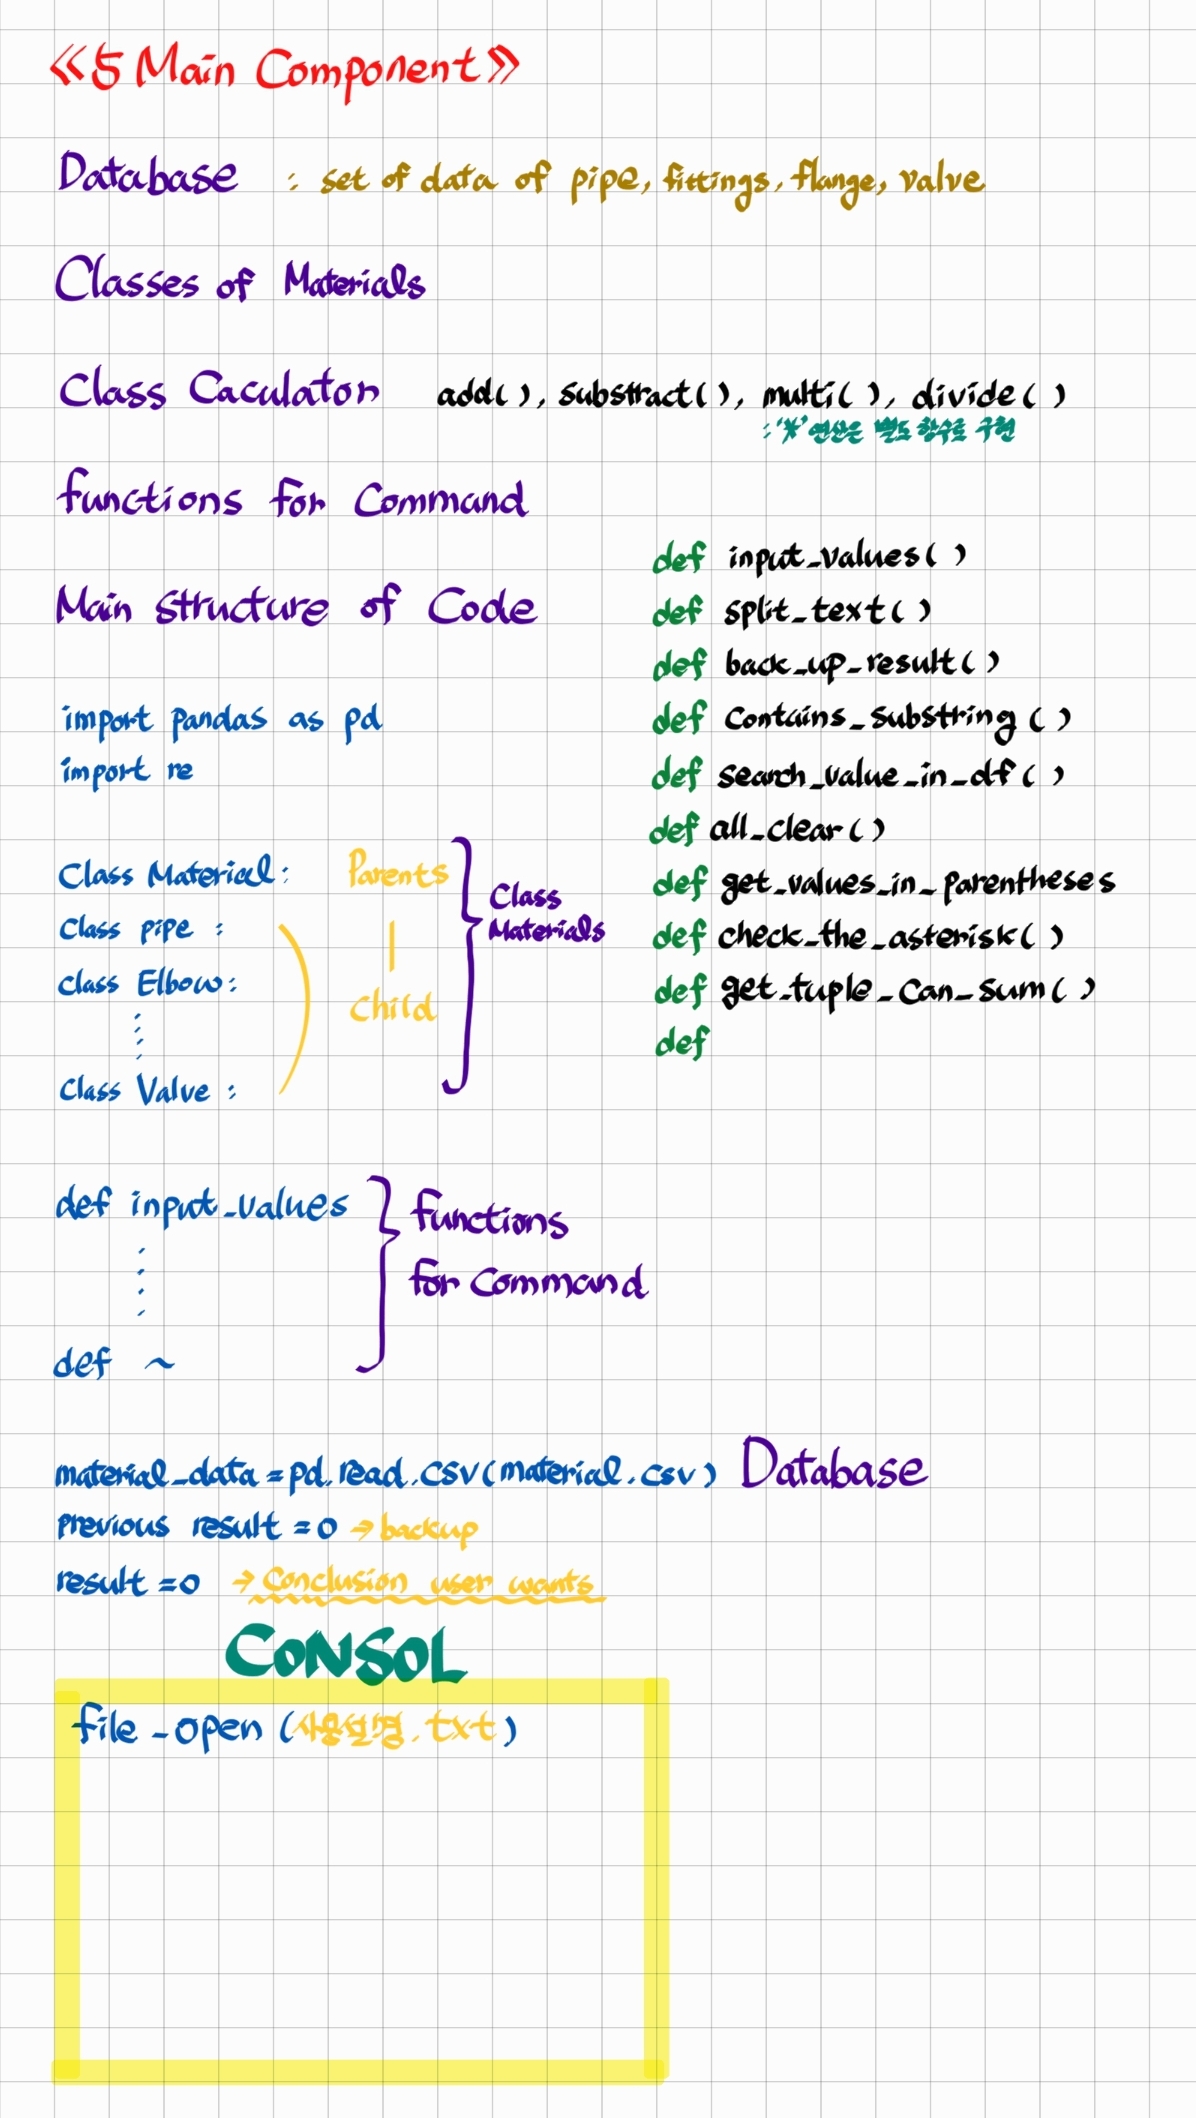 《5 Main Component》
Database : set of data of pipe, fittings, flange, valve
Classes of Materials
Class Caculator add(), substract(), multi(), divide()
: '*' 연산은 별도 함수로 구현
functions for Command
Main structure of Code
def input_values()
def split_text()
def back_up_result()
def contains_substring()
def search_value_in_df()
def all_clear()
def get_values_in_parentheses
def check_the_asterisk()
def get_tuple_can_sum()
def
import pandas as pd
import re
Class Material: Parents
Class pipe :
Class Elbow:
Child
Class Valve :
Class
Materials
def input_values
def ~
functions
for Command
material_data = pd.read.csv(material.csv) Database
previous result = 0 → backup
result = 0 → Conclusion user wants
CONSOL
file_open (사용설명.txt)